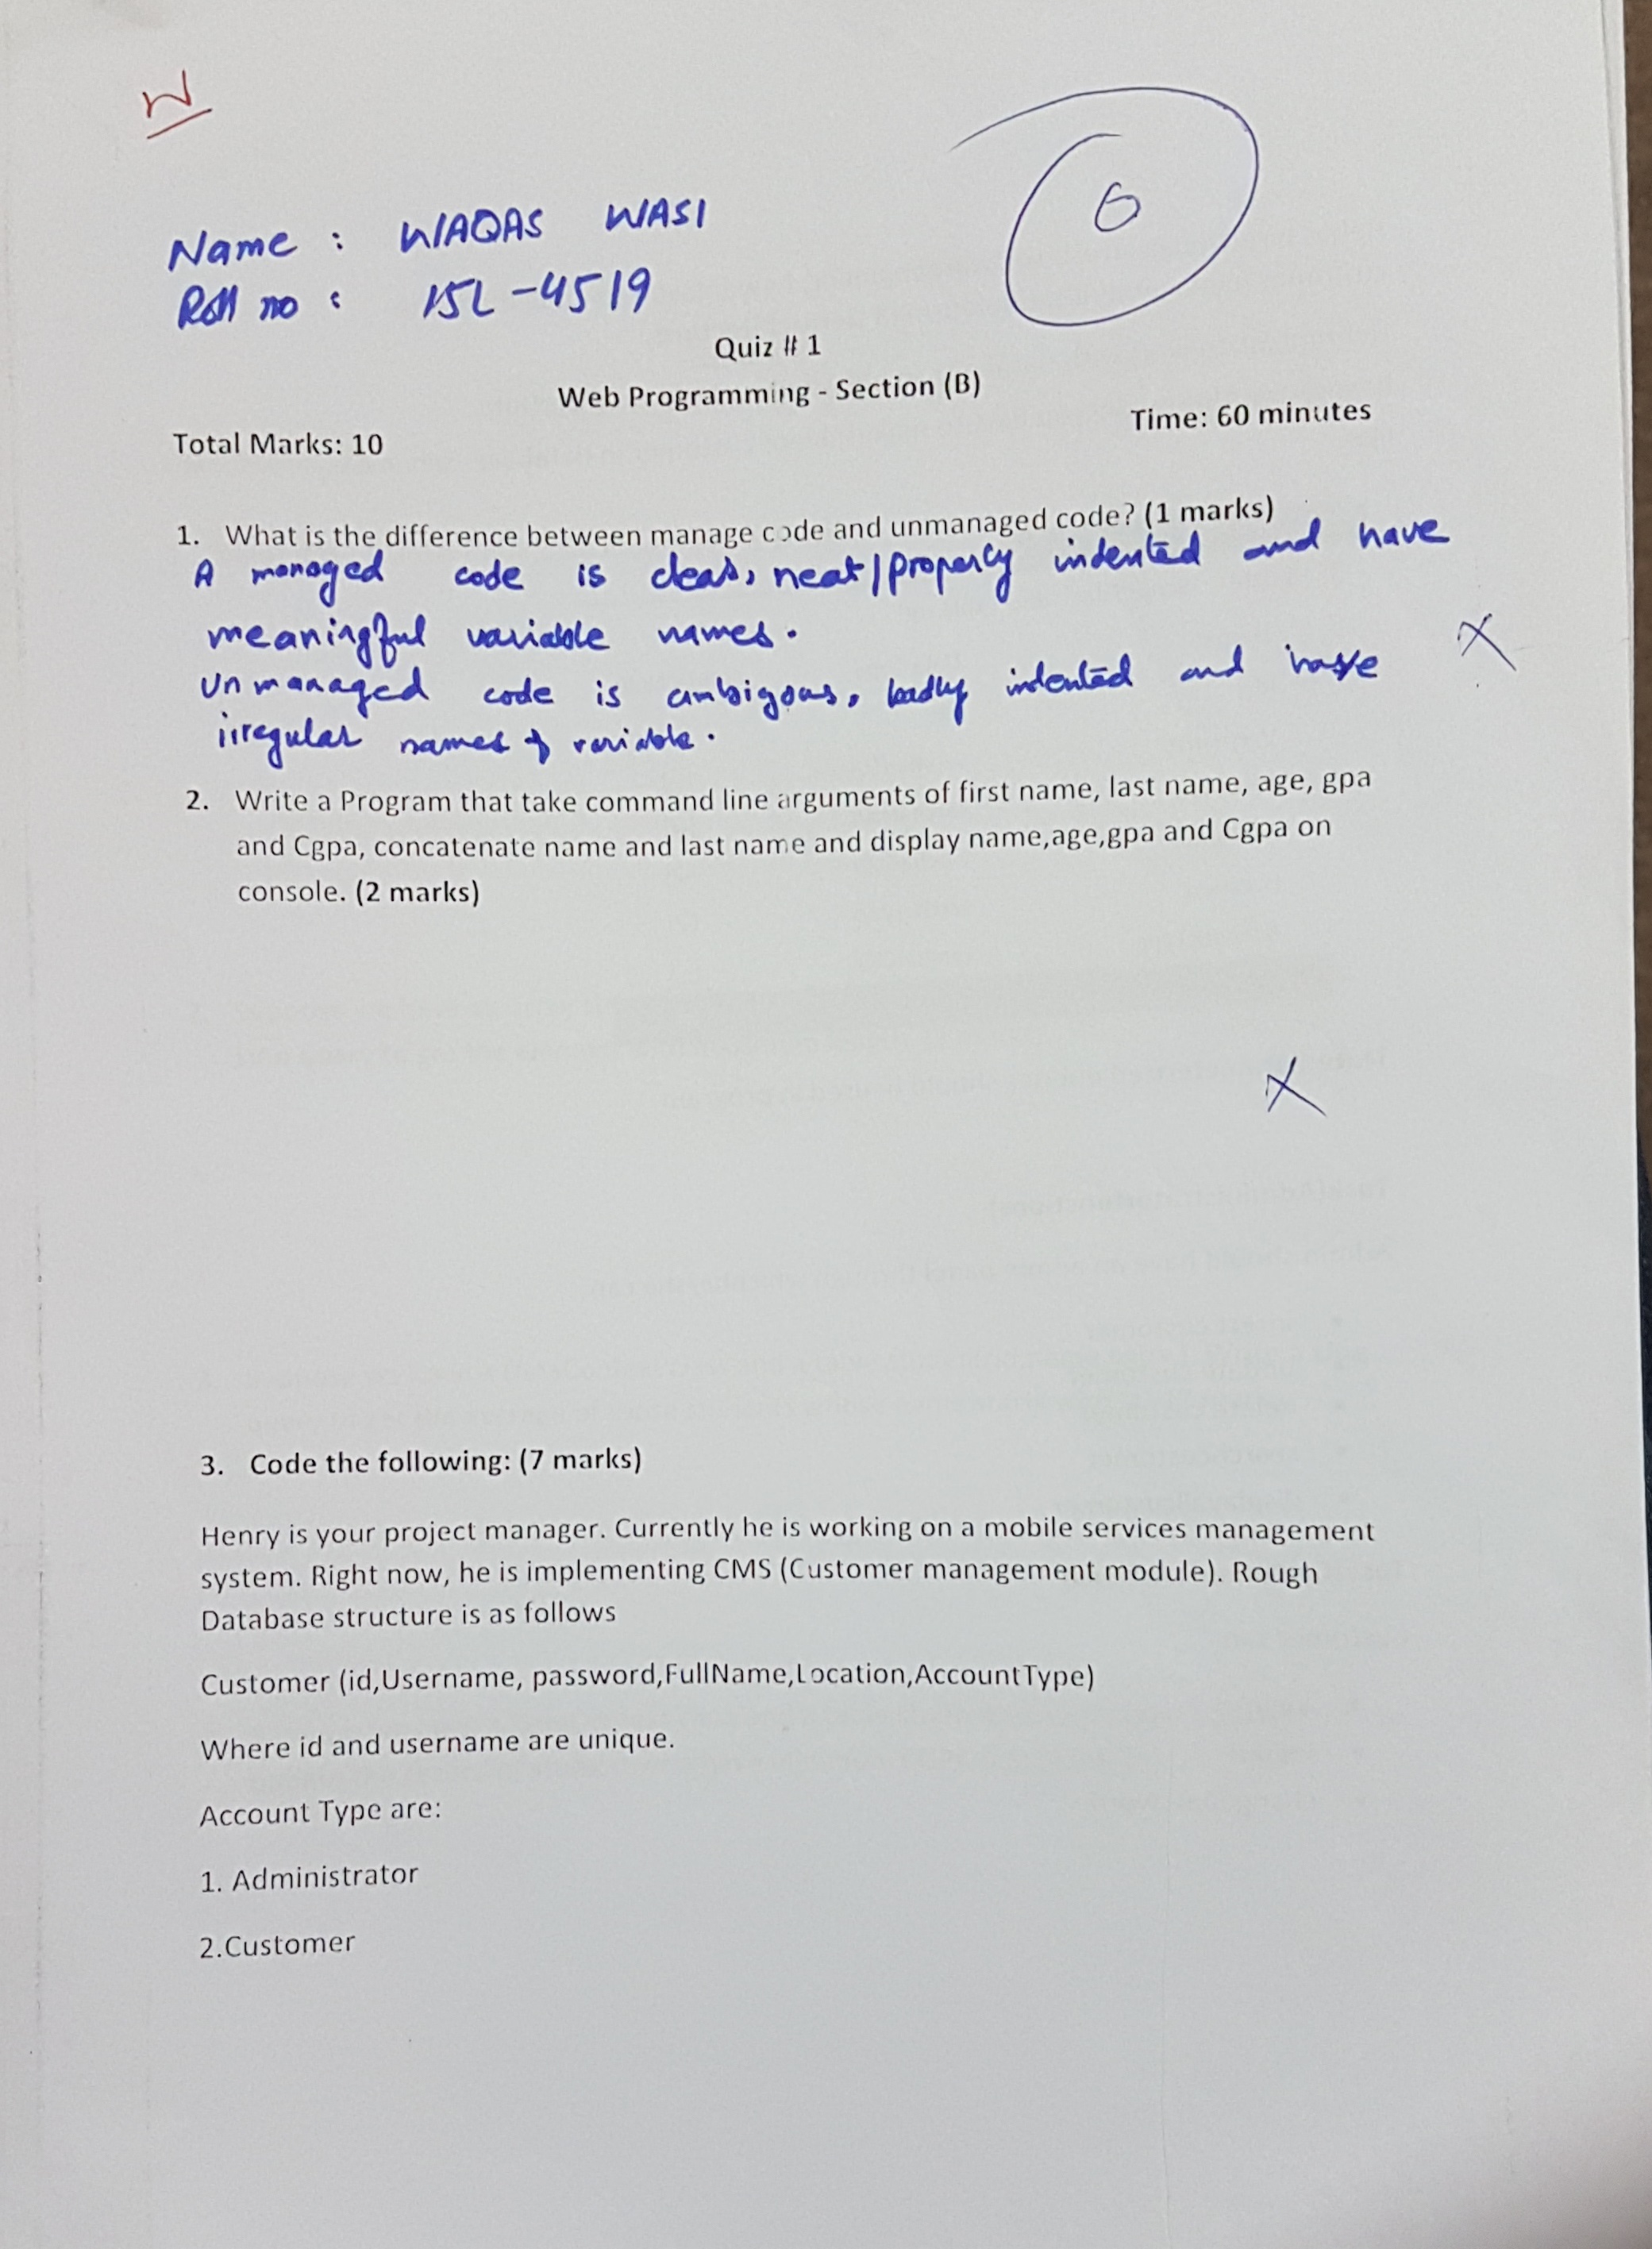 N
Name : WAQAS WASI
Roll no : 15L-4519
Quiz # 1
Web Programming - Section (B)
Time: 60 minutes
Total Marks: 10
1. What is the difference between manage code and unmanaged code? (1 marks)
A managed code is clear, neat/properly indented and have
meaningful variable names.
X
Unmanaged code is ambigous, badly indented and have
irregular names of variable.
2. Write a Program that take command line arguments of first name, last name, age, gpa
and Cgpa, concatenate name and last name and display name,age,gpa and Cgpa on
console. (2 marks)
X
3. Code the following: (7 marks)
Henry is your project manager. Currently he is working on a mobile services management
system. Right now, he is implementing CMS (Customer management module). Rough
Database structure is as follows
Customer (id,Username, password,FullName,Location,AccountType)
Where id and username are unique.
Account Type are:
1. Administrator
2.Customer